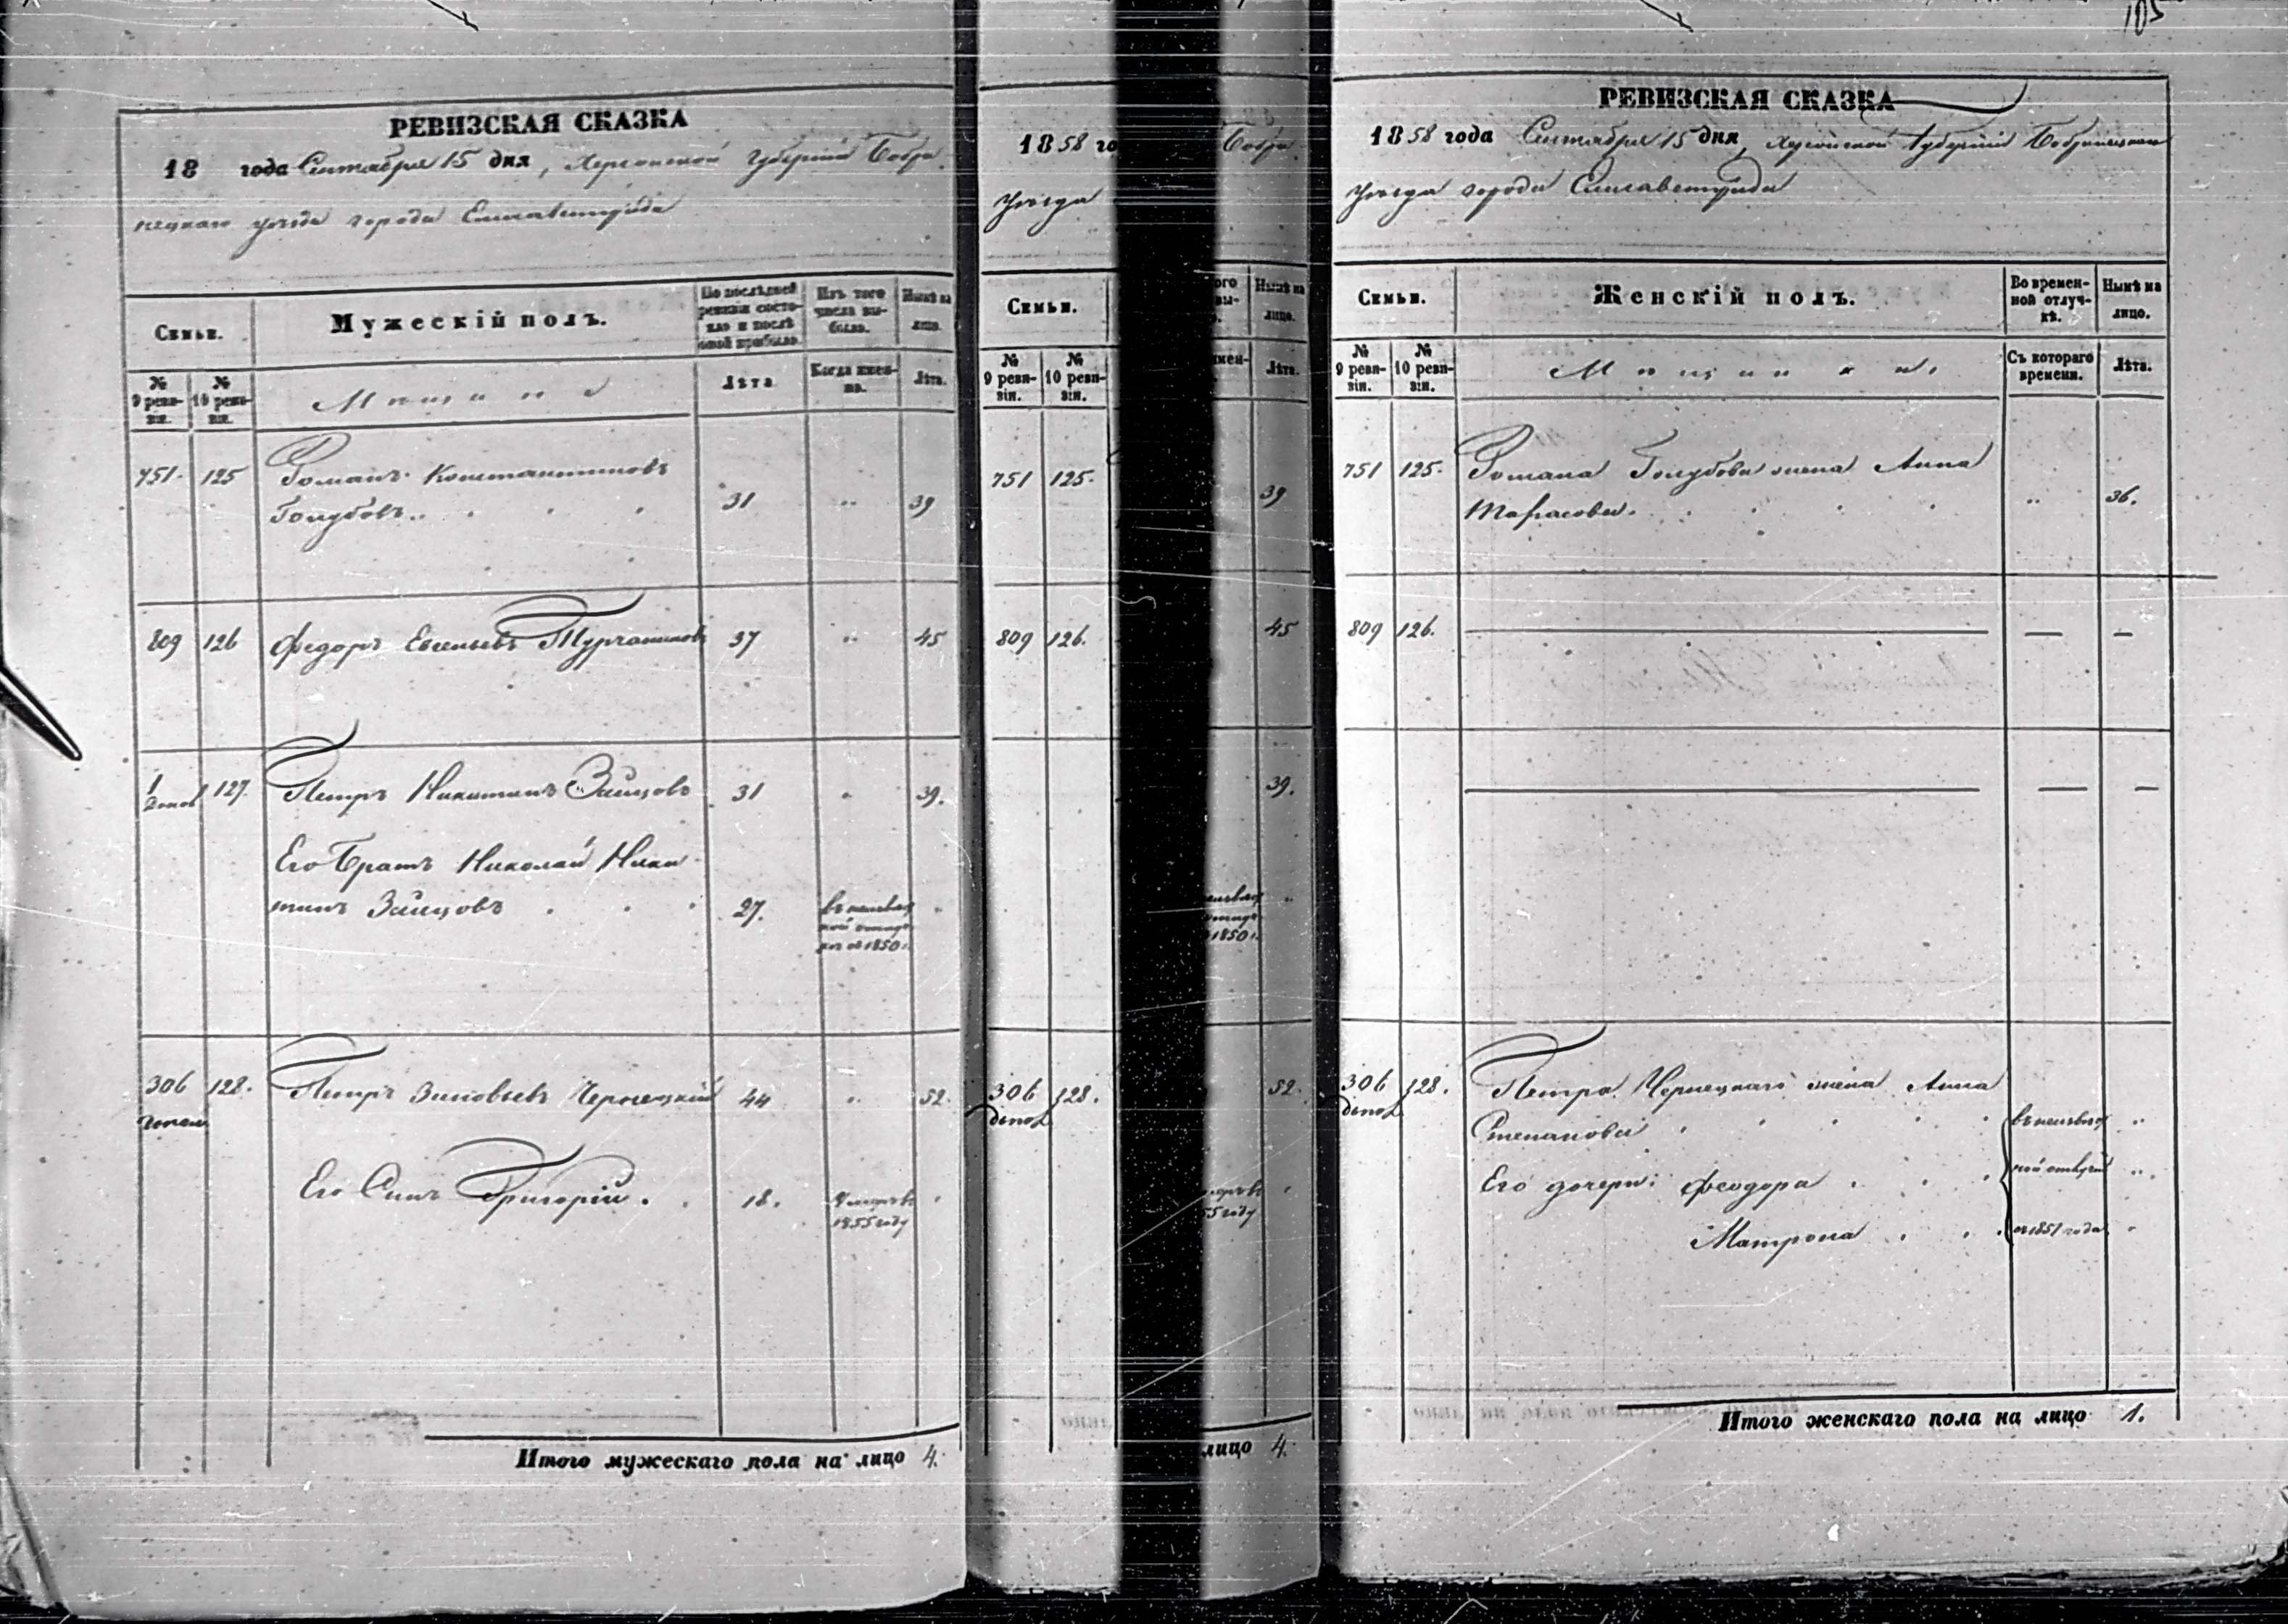 РЕВИЗСКАЯ СКАЗКА
18 года Сентября 15 дня, Херсонской Губерніи Бобри-
нецкаго уѣзда города Елисаветграда
Семьи.
Мужескій полъ.
По послѣдней ревизіи состояло и послѣ оной прибыло.
Изъ того числа выбыло.
Нынѣ на лицо.
№ 9 ревизіи.
№ 10 ревизіи.
Мѣщане
Лѣта
Когда именно.
Лѣта.
751. 125 Романъ Константиновъ
Голубовъ. 31 " 39
809 126 Федоръ Евсеньевъ Турчаниновъ 37 " 45
1 127. Петръ Никитинъ Зайцовъ 31 " 39.
Его Братъ Николай Ники-
тинъ Зайцовъ 27. въ неизвѣст
ной отлуч
кѣ съ 1850 г.
306 128. Петръ Зиновьевъ Чернецкій 44 " 52.
допол
Его Сынъ Григорій. 18. Умеръ въ
1855 году
Итого мужескаго пола на лицо 4.
1858 го
уѣзда
Семьи.
№ 9 ревизіи.
№ 10 ревизіи.
751 125.
809 126.
306 128.
допол
Бобри
того
вы-
Нынѣ на лицо.
имен-
Лѣта.
39
45
39.
1850 г.
52.
55 году
лицо 4.
105
РЕВИЗСКАЯ СКАЗКА
1858 года Сентября 15 дня, Херсонской Губерніи Бобринецкаго
уѣзда города Елисаветграда
Семьи.
Женскій полъ.
Во времен-
ной отлуч-
кѣ.
Нынѣ на
лицо.
№
9 реви-
зіи.
№
10 реви-
зіи.
Мѣщанки.
Съ котораго
времени.
Лѣта.
751 125. Романа Голубова жена Анна
Тарасова. " 36.
809 126. — — —
— — —
306 128. Петра Чернецкаго жена Анна
допол
Степанова въ неизвѣст "
Его дочери: Феодора ной отлучкѣ "
Матрона съ 1851 года "
Итого женскаго пола на лицо 1.